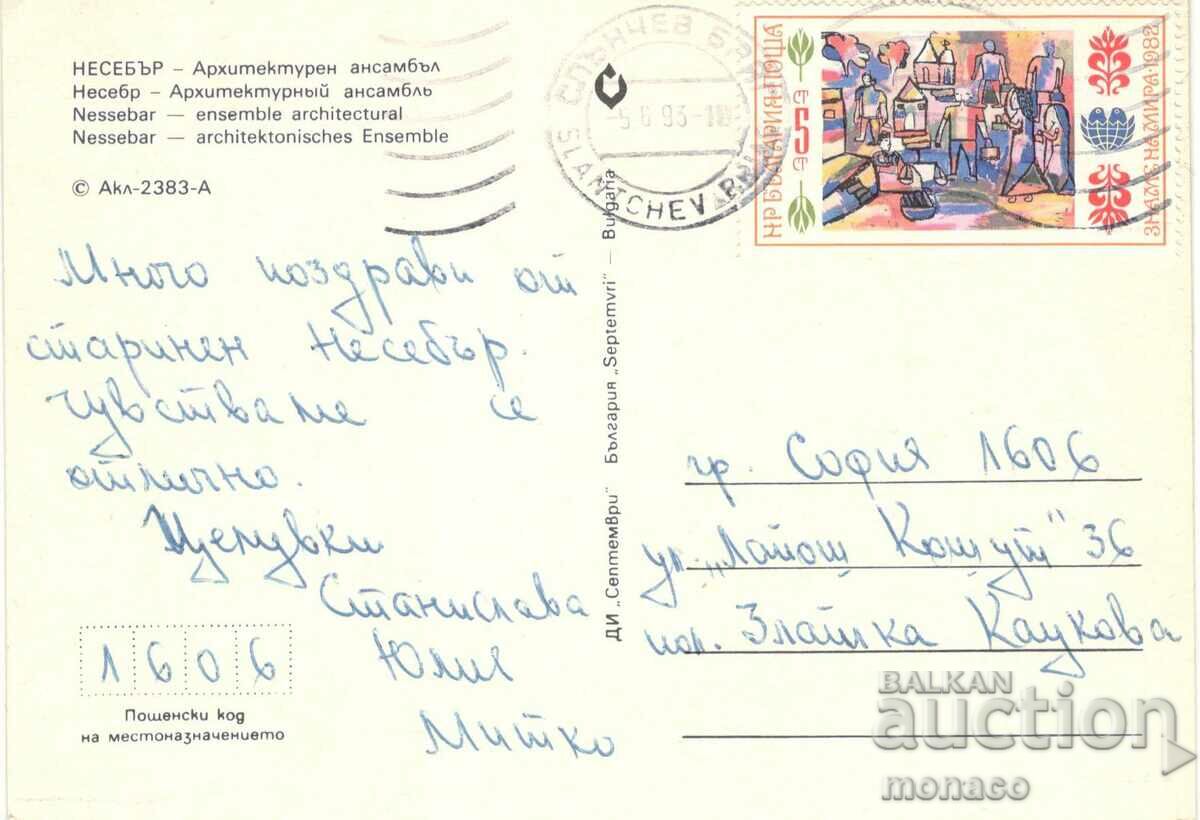 НЕСЕБЪР – Архитектурен ансамбъл
Несебр – Архитектурный ансамбль
Nessebar — ensemble architectural
Nessebar — architektonisches Ensemble
© Акл-2383-А
Много поздрави от
старинен Несебър.
чувстваме се
отлично.
Целувки
Станислава
Юлия
Митко
1606
Пощенски код
на местоназначението
ДИ „Септември" България „Septemvri" — Bulgaria
СЛЪНЧЕВ БРЯГ
SLANTCHEV
НР БЪЛГАРИЯ·ПОЩА
5 СТ
ЗНАМЕ НА МИРА·1982
гр. София 1606
ул. „Лайош Кошут" 36
пол. Златка Каукова
BALKAN
auction
monaco